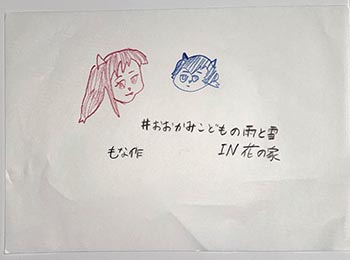 #おおかみこどもの雨と雪
もな作 IN 花の家